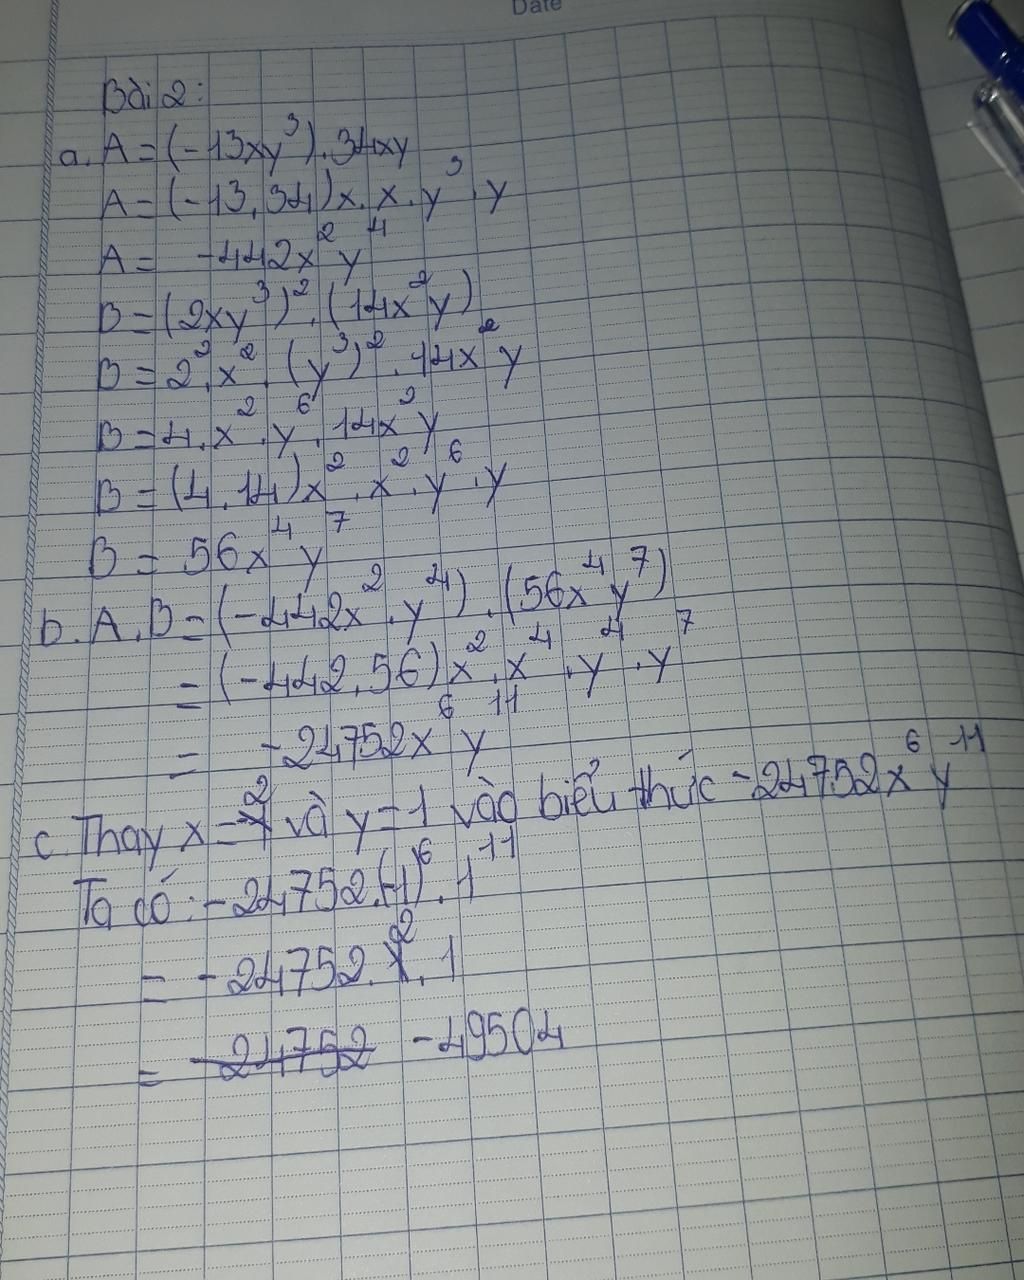 Date
Bài 2:
a. A = (-13xy³).34xy
A = (-13.34)x.x.y³.y
A = -442x²y⁴
B = (2xy³)².(14x²y)
B = 2².x².(y³)².14x²y
B = 4.x².y⁶.14x²y
B = (4.14)x².x².y⁶.y
B = 56x⁴y⁷
b. A.B = (-442x².y⁴).(56x⁴y⁷)
= (-442.56)x².x⁴.y⁴.y⁷
= -24752x⁶y¹¹
c. Thay x = 2 và y = 1 vào biểu thức -24752x⁶y¹¹
Ta có: -24752.(-1)⁶.1¹¹
= -24752.2.1
= -24752 -49504